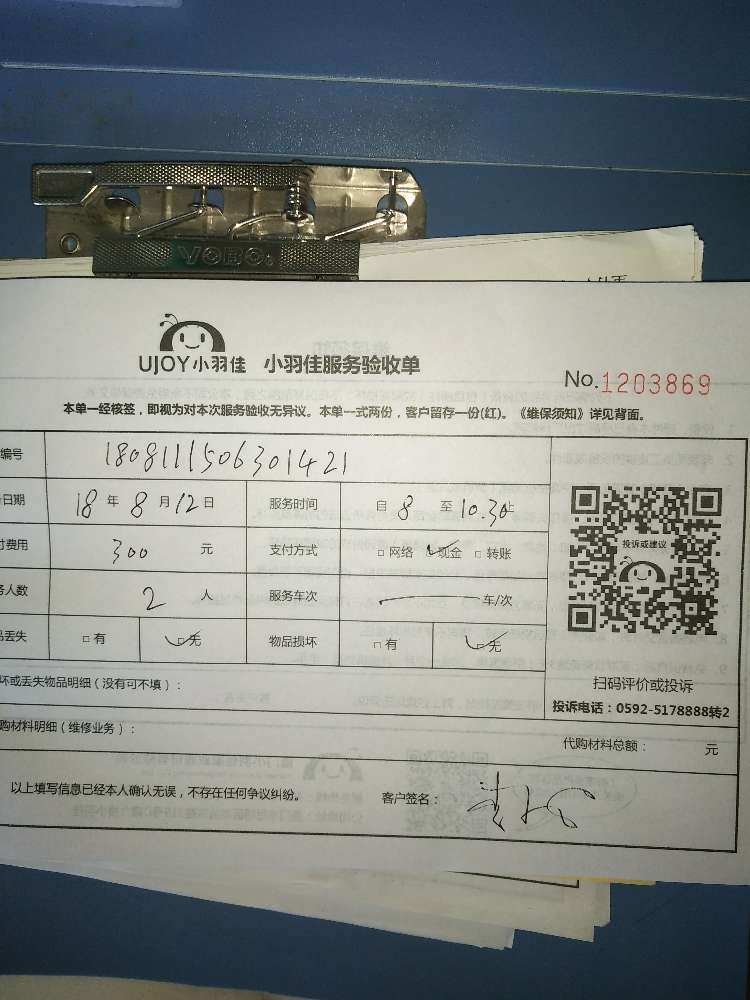 VOBO
UJOY小羽佳 小羽佳服务验收单
No.1203869
本单一经核签，即视为对本次服务验收无异议。本单一式两份，客户留存一份(红)。《维保须知》详见背面。
编号 1808111506301421
日期 18年8月12日 服务时间 自8至10.30止
费用 300元 支付方式 □网络 ☑现金 □转账
人数 2人 服务车次 — 车/次
丢失 □有 ☑无 物品损坏 □有 ☑无
投诉或建议
扫码评价或投诉
投诉电话：0592-5178888转2
坏或丢失物品明细（没有可不填）：
购材料明细（维修业务）： 代购材料总额： 元
以上填写信息已经本人确认无误，不存在任何争议纠纷。 客户签名：